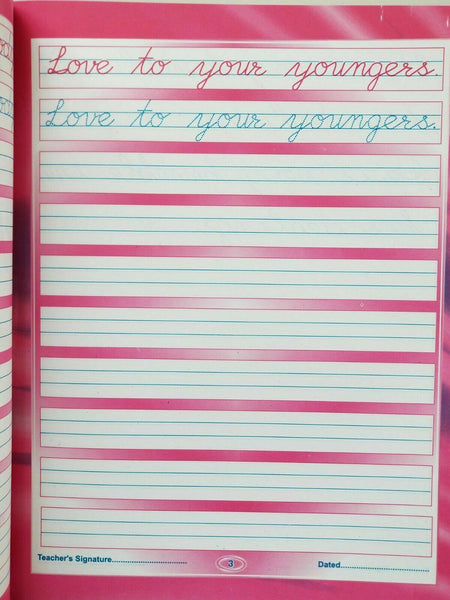 Love to your youngers.
Love to your youngers.
Teacher's Signature................................ 3 Dated................................